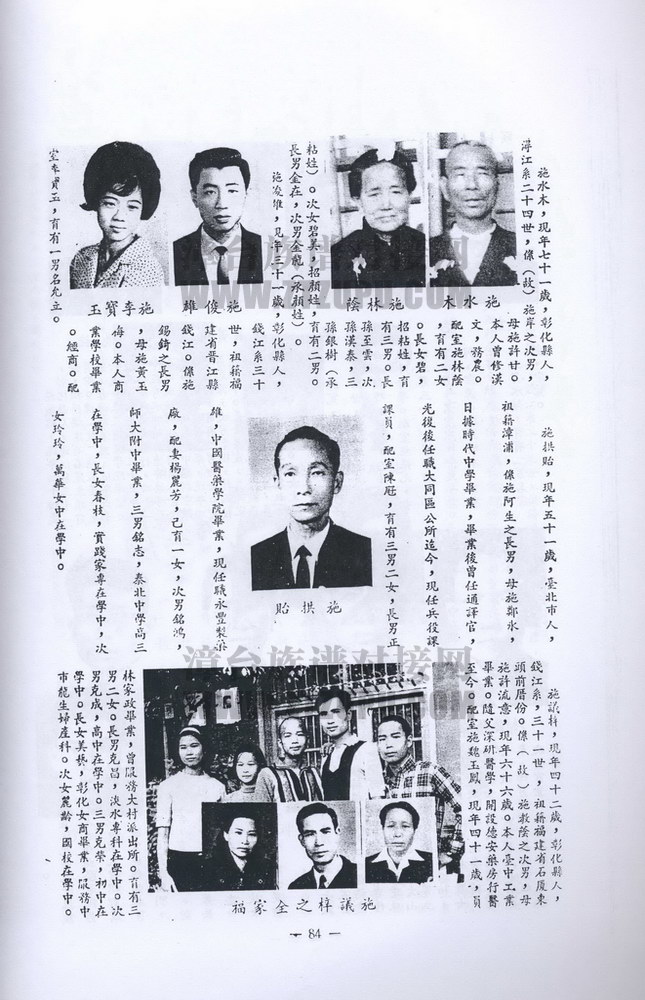 施水木，現年七十一歲，彰化縣人，
潯江系二十四世，係（故）施岸之次男，
母施許甘。
本人曾修漢
文，務農。
配室施林蔭
，育有二女
。長女碧，
招粘姓，育
有三男。長
孫至雲，次
孫漢泰，三
孫銀樹（承
粘姓）。次女碧美，招顏姓，育有二男。
長男金在，次男金龍（承顏姓）。
木水施
蔭林施
施俊雄，現年三十一歲，彰化縣人，
錢江系三十
世，祖籍福
建省晉江縣
錢江。係施
錫錡之長男
，母施黃玉
侮。本人商
業學校畢業
。經商。配
室李寶玉，育有一男名允立。
雄俊施
玉寶李施
施拱貽，現年五十一歲，臺北市人，
祖籍漳浦，係施阿生之長男，母施鄭水，
日據時代中學畢業，畢業後曾任通譯官，
光復後任職大同區公所迄今，現任兵役課
課員，配室陳，育有三男二女，長男正
雄，中國醫藥學院畢業，現任職永豐製藥
廠，配妻楊麗芳，已育一女，次男銘鴻，
師大附中畢業，三男銘志，泰北中學高三
在學中，長女春枝，實踐家專在學中，次
女玲玲，萬華女中在學中。
貽拱施
施議梓，現年四十二歲，彰化縣人，
錢江系，三十一世，祖籍福建省石厦東
頭前厝份。係（故）施教蔭之次男，母
施許流意，現年六十六歲。本人臺中工業
畢業。隨父深研醫學，開設德安藥房行醫
至今。配室施魏玉鳳，現年四十一歲，員
林家政畢業，曾服務大村派出所。育有三
男二女。長男克昌，淡水專科在學中。次
男克成，高中在學中。三男克榮，初中在
學中。長女美藝，彰化女商畢業，服務中
市龍生婦產科。次女麗齡，國校在學中。
福家全之梓議施
— 84 —
漳台族谱对接网
漳台族谱对接网